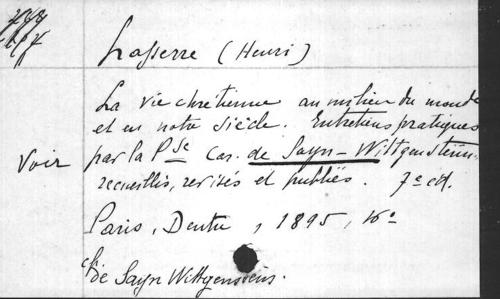 Lasserre (Henri)
La vie chrétienne au milieu du monde
et en notre siècle. Entretiens pratiques
Voir par la Pse Car. de Sayn-Wittgenstein
recueillis, revisés et publiés. 7e éd.
Paris, Dentu, 1895, 16o
de Sayn Wittgenstein.